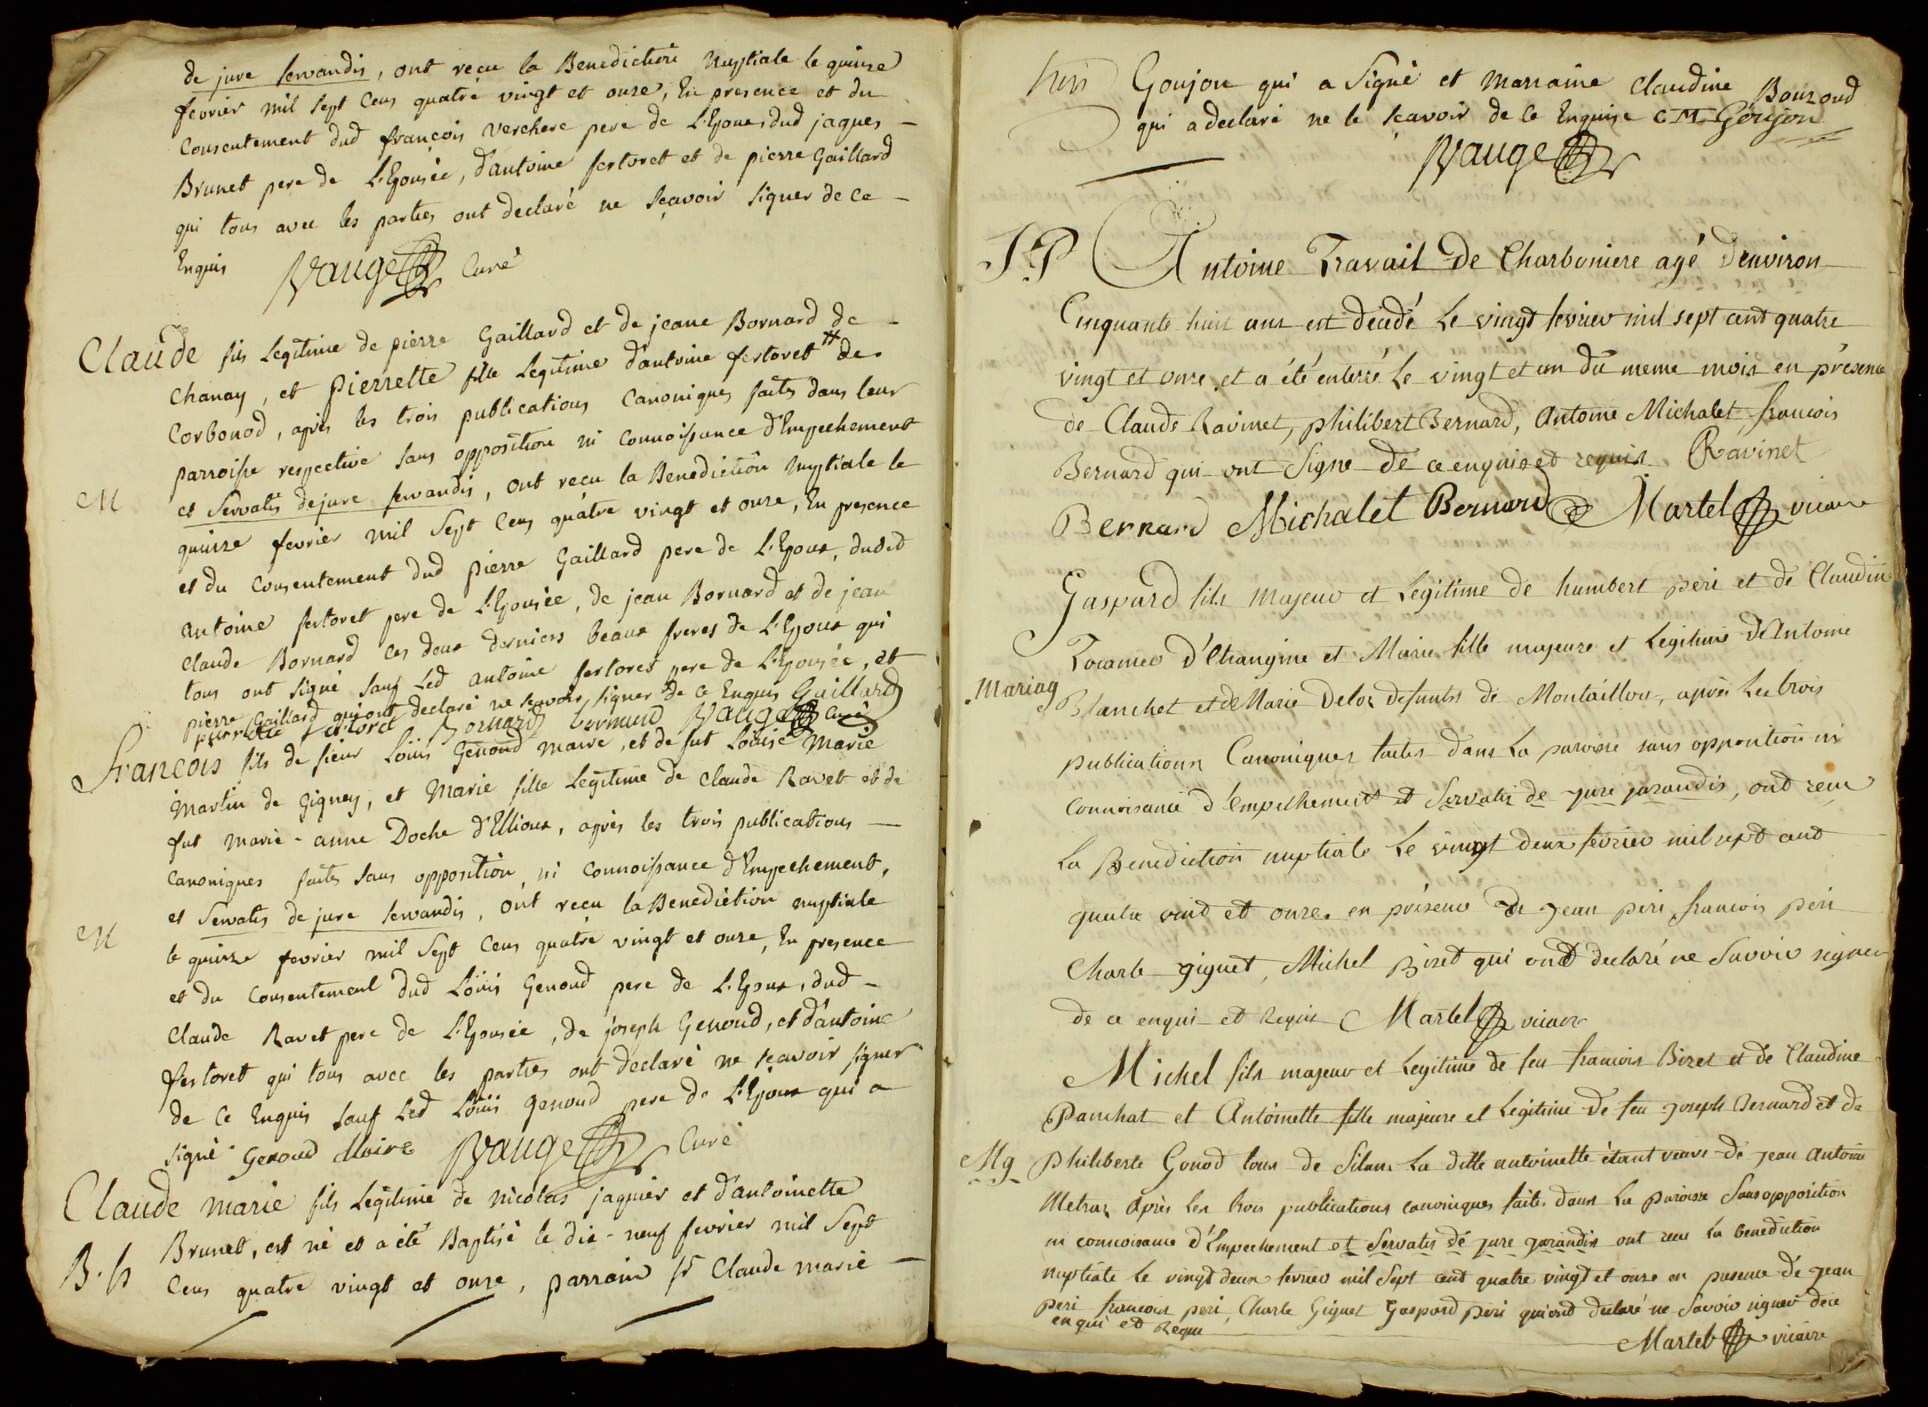 de jure servandis, ont reçu la Benediction Nuptiale le quinze
fevrier mil sept Cens quatre vingt et onze, En presence et du
Consentement dud françois Verchere pere de L'Epoux, dud jaques
Brunet pere de L'Epousée, d'antoine fertoret et de pierre Gaillard
qui tous avec les parties ont declaré ne sçavoir signer de Ce
Enquis Vauge Curé
Claude fils Legitime de pierre Gaillard et de jeane Bornard de
Chanay, et pierrette fille Legitime d'antoine fertoret # de
Corbonod, après les trois publications Canoniques faites dans leur
parroisse respective sans opposition ni Connoissance d'Empechement
M
et servatis de jure servandis, ont reçu la Benediction Nuptiale le
quinze fevrier mil Sept Cens quatre vingt et onze, En presence
et du Consentement dud pierre Gaillard pere de L'Epoux, dudid
antoine fertoret pere de L'Epousée, de jean Bornard et de jean
Claude Bornard Ces deux derniers beaux freres de L'Epoux qui
tous ont signé sauf Led antoine fertoret pere de L'Epousée, et
pierre Gaillard qui ont declaré ne sçavoir signer de Ce Enquis Gaillard
pierrette fertoret Bornard Bornard Vauge Curé
Francois fils de sieur Loüis Genoud Maire, et de fut Loüise Marie
Martin de Gigney, et Marie fille Legitime de Claude Ravet et de
fut Marie-anne Doche d'Ellioux, après les trois publications
Canoniques faites sans opposition, ni Connoissance d'Empechement,
M
et servatis de jure servandis, ont reçu la Benediction nuptiale
le quinze fevrier mil Sept Cens quatre vingt et onze, En presence
et du Consentement dud Loüis Genoud pere de L'Epoux, dud
Claude Ravet pere de L'Epousée, de joseph Genoud, et d'antoine
fertoret qui tous avec les parties ont declaré ne sçavoir signer
de Ce Enquis sauf Led Loüis Genoud pere de L'Epoux qui a
signé Genoud Maire Vauge Curé
Claude Marie fils Legitime de Nicolas jaquier et d'antoinette
B.h
Brunet, est né et a été Baptisé le dix-neuf fevrier mil Sept
Cens quatre vingt et onze, parrain sr Claude Marie
Goujon qui a signé et Marraine Claudine Bonzoud
qui a declaré ne le sçavoir de Ce Enquise C M Goujon
Vauge
S.P
Antoine Travail de Charboniere agé denviron
Cinquante huit ans est decedé le vingt fevrier mil sept cent quatre
vingt et onze et a été enterré le vingt et un du meme mois en presence
de Claude Ravinet, philibert Bernard, Antoine Michalet françois
Bernard qui ont Signe de ce enquis et requis Ravinet
Bernard Michalet Bernard Martel vicaire
Gaspard fils majeur et Legitime de humbert peri et de Claudine
Tocanier d'Etrangine et Marie fille majeure et Legitime d'Antoine
Mariag
Blanchet et de Marie Deloz defunts de Montaillou, après les trois
publications Canoniques faites dans La paroisse sans opposition ni
connoissance d'empechement et servatis de jure jurandis, ont recu
La Benediction nuptiale Le vingt deux fevrier mil sept cent
quatre vint et onze en présence de jean peri françois peri
Charle giguet, Michel Bizet qui ont declaré ne Savoir signer
de ce enqui et requis Martel vicaire
Michel fils majeur et Legitime de feu françois Bizet et de Claudine
Panchat et Antoinette fille majeure et Legitime de feu joseph Bernard et de
Mg
Philiberte Gonod tous de Silans La ditte antoinette étant veuve de jean Antoine
Metraz Après les trois publications canoniques faites dans La paroisse Sans opposition
ni connoissance d'Empechement et Servatis dé jure jurandis ont reçu La benediction
nuptiale Le vingt deux fevrier mil Sept cent quatre vingt et onze en presence dé jean
peri françois peri, Charle Giguet Gaspard peri qui ont declaré ne Savoir signer de ce
enqui et Requi
Martel vicaire